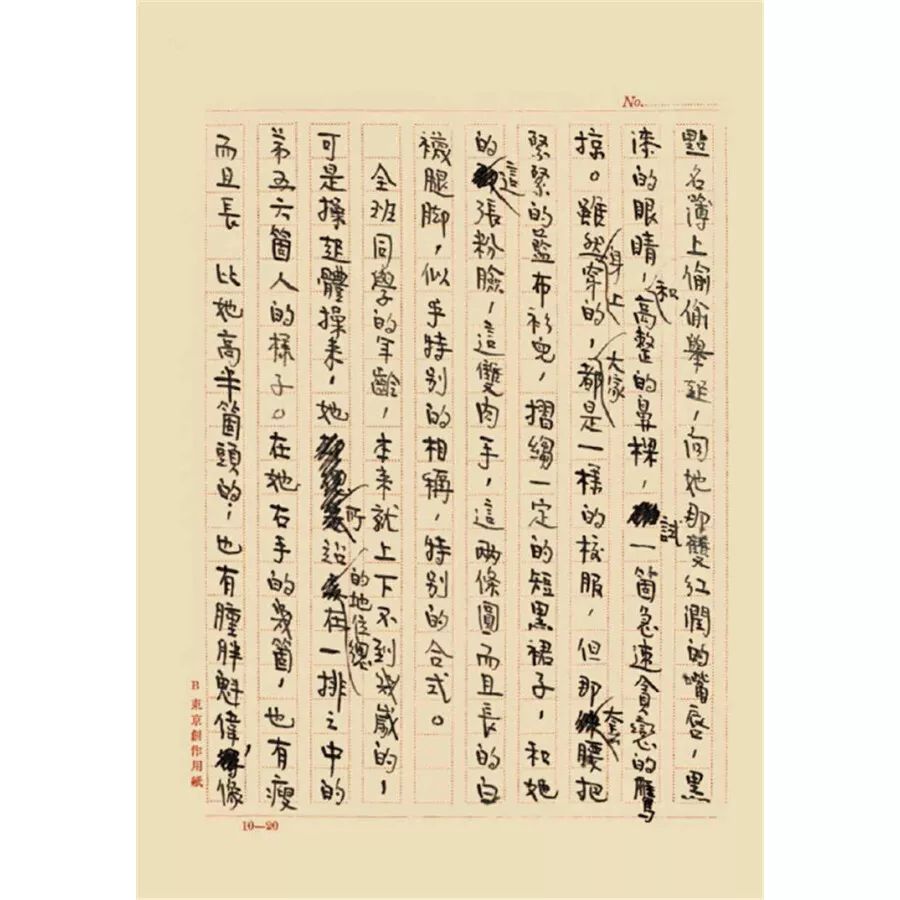 No.
點名簿上偷偷舉起,向她那雙紅潤的嘴唇,黑
漆的眼睛,和高整的鼻樑,試一箇急速貪戀的鷹
掠。雖然身上穿的,大家都是一樣的校服,但那套腰把
緊緊的藍布衫兒,摺縐一定的短黑裙子,和她
的這張粉臉,這雙肉手,這兩條圓而且長的白
襪腿脚,似乎特別的相稱,特別的合式。
全班同學的年齡,本来就上下不到幾歲的,
可是操起體操来,她所站的地位總在一排之中的
第五六箇人的樣子。在她右手的幾箇,也有瘦
而且長 比她高半箇頭的;也有腫胖魁偉,像
B 東京創作用紙
10—20